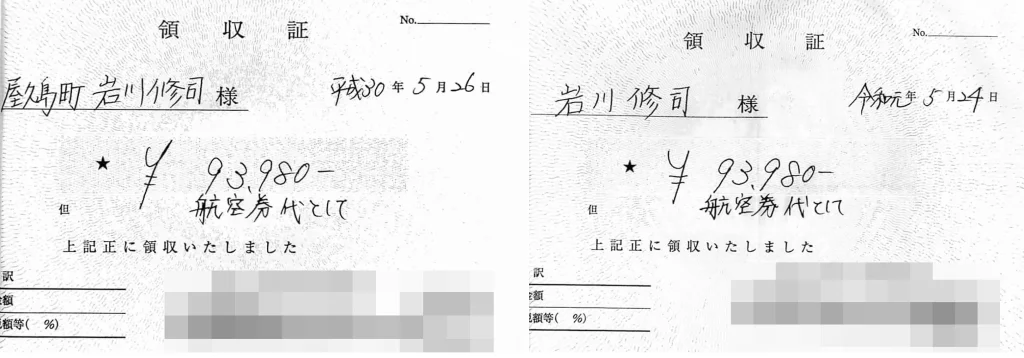 領収証
No.
屋久島町 岩川修司 様
平成30年5月26日
★ ¥93,980-
但 航空券代として
上記正に領収いたしました
訳
金額
税額等( %)
領収証
No.
岩川修司 様
令和元年5月24日
★ ¥93,980-
但 航空券代として
上記正に領収いたしました
訳
金額
税額等( %)